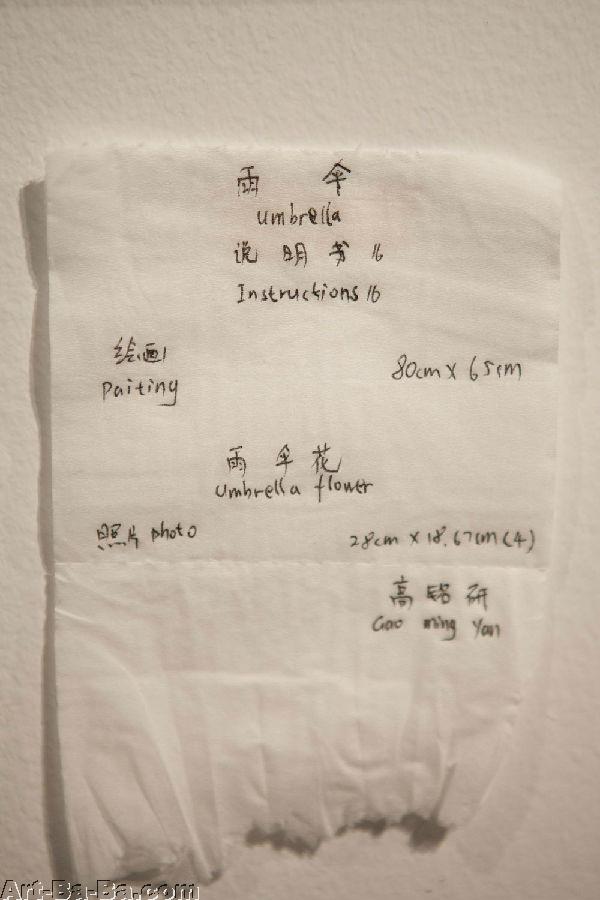 雨 伞
umbrella
说 明 书 16
Instructions 16
绘画
Paiting
80cm X 65cm
雨 伞 花
umbrella flower
照片 photo
28cm X 18.67cm(4)
高 铭 研
Gao ming Yan
Art-Ba-Ba.com